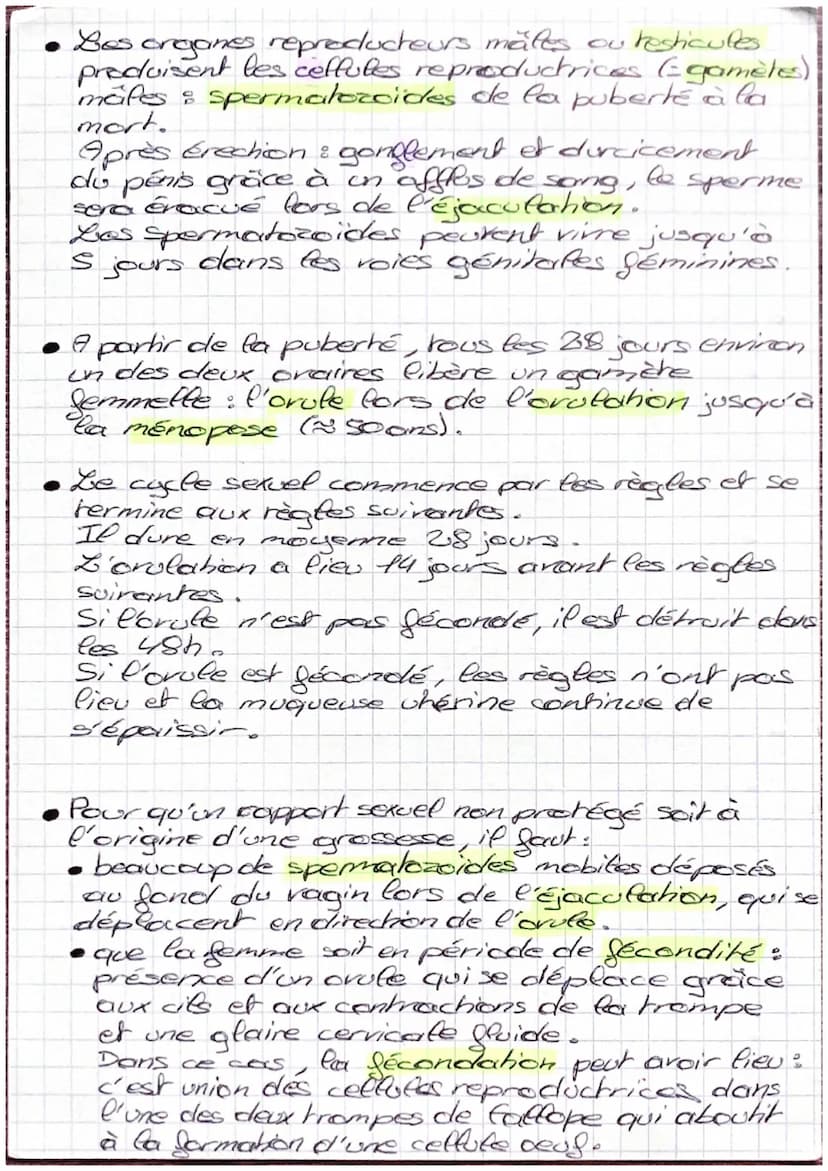 • Les organes reproducteurs mâles ou testicules
produisent les cellules reproductrices (= gamètes)
mâles : spermatozoïdes de la puberté à la
mort.
Après érection : gonflement et durcicement
du pénis grâce à un afflos de sang, le sperme
sera évacué lors de l'éjaculation.
Les spermatozoïdes peuvent vivre jusqu'à
5 jours dans les voies génitales féminines.
• A partir de la puberté, tous les 28 jours environ
un des deux ovaires libère un gamète
femmelle : l'ovule lors de l'ovulation jusqu'à
la ménopose (≈ 50ans).
• Le cycle sexuel commence par les règles et se
termine aux règles suivantes.
Il dure en moyenne 28 jours.
L'ovulation a lieu 14 jours avant les règles
suivantes.
Si l'ovule n'est pas fécondé, il est détruit dans
les 48h.
Si l'ovule est fécondé, les règles n'ont pas
lieu et la muqueuse utérine continue de
s'épaissir.
• Pour qu'un rapport sexuel non protégé soit à
l'origine d'une grossesse, il faut :
• beaucoup de spermatozoïdes mobiles déposés
au fond du vagin lors de l'éjaculation, qui se
déplacent en direction de l'ovule.
• que la femme soit en période de fécondité :
présence d'un ovule qui se déplace grâce
aux cils et aux contractions de la trompe
et une glaire cervicale fluide.
Dans ce cas, la fécondation peut avoir lieu :
c'est union des cellules reproductrices dans
l'une des deux trompes de Fallope qui aboutit
à la formation d'une cellule oeuf.